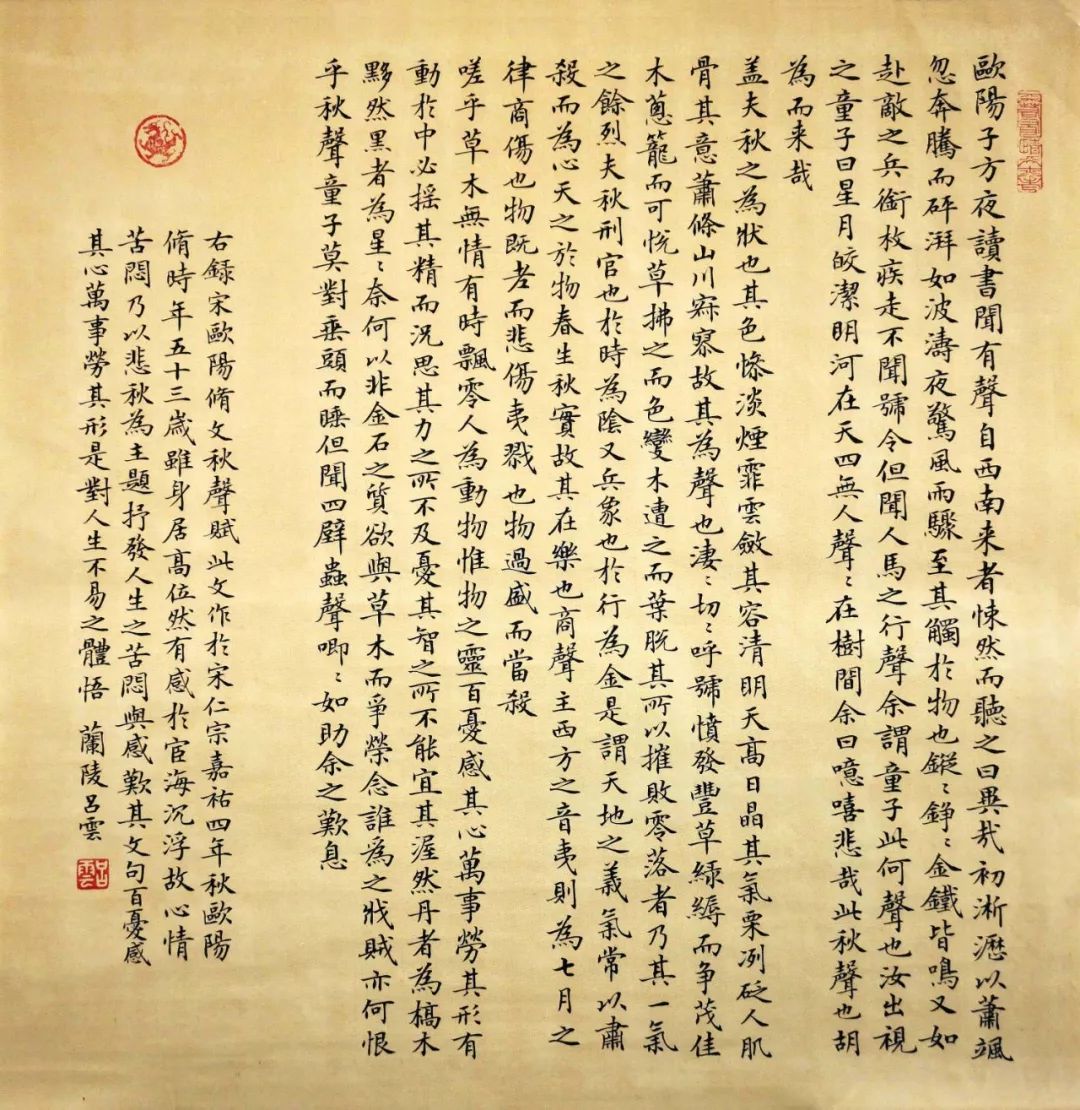 歐陽子方夜讀書聞有聲自西南来者悚然而聽之曰異哉初淅瀝以蕭颯
忽奔騰而砰湃如波濤夜驚風雨驟至其觸於物也鏦〻錚〻金鐵皆鳴又如
赴敵之兵銜枚疾走不聞號令但聞人馬之行聲余謂童子此何聲也汝出視
之童子曰星月皎潔明河在天四無人聲〻在樹間余曰噫嘻悲哉此秋聲也胡
為而来哉
盖夫秋之為狀也其色慘淡煙霏雲斂其容清明天高日晶其氣栗冽砭人肌
骨其意蕭條山川寂寥故其為聲也淒〻切〻呼號憤發豐草綠縟而争茂佳
木蔥籠而可悦草拂之而色變木遭之而葉脱其所以摧敗零落者乃其一氣
之餘烈夫秋刑官也於時為陰又兵象也於行為金是謂天地之義氣常以肅
殺而為心天之於物春生秋實故其在樂也商聲主西方之音夷則為七月之
律商傷也物既老而悲傷夷戮也物過盛而當殺
嗟乎草木無情有時飄零人為動物惟物之靈百憂感其心萬事勞其形有
動於中必摇其精而況思其力之所不及憂其智之所不能宜其渥然丹者為槁木
黟然黑者為星〻奈何以非金石之質欲與草木而爭榮念誰為之戕賊亦何恨
乎秋聲童子莫對垂頭而睡但聞四壁蟲聲唧〻如助余之歎息
右録宋歐陽脩文秋聲賦此文作於宋仁宗嘉祐四年秋歐陽
脩時年五十三歲雖身居高位然有感於宦海沉浮故心情
苦悶乃以悲秋為主題抒發人生之苦悶與感歎其文句百憂感
其心萬事勞其形是對人生不易之體悟 蘭陵呂雲
呂雲